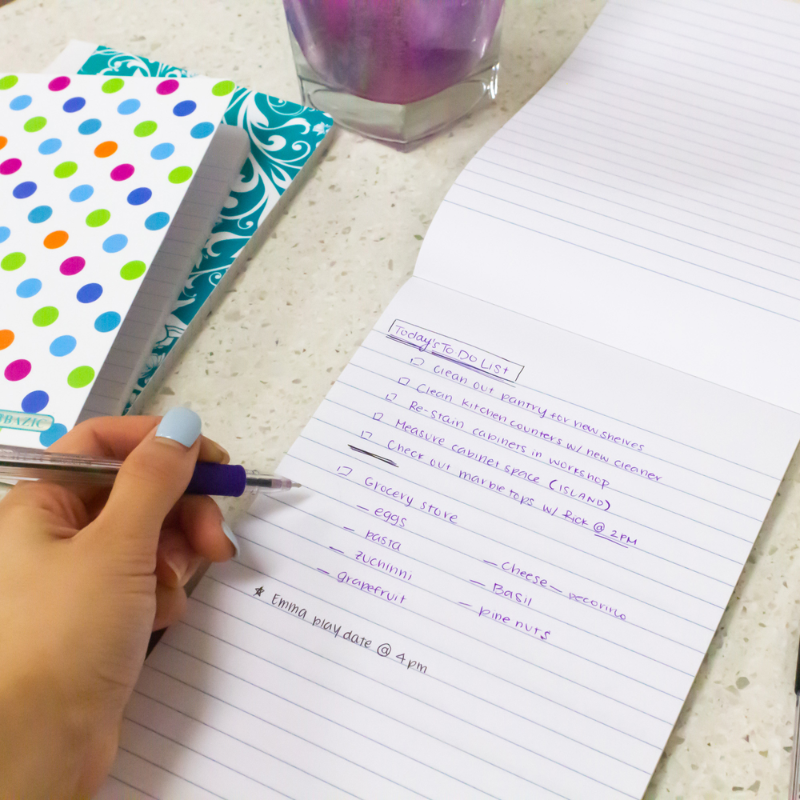 Today's To Do List
Clean out pantry for new shelves
Clean kitchen counters w/ new cleaner
Re-stain cabinets in workshop
Measure cabinet space (ISLAND)
Check out marble tops w/ Rick @ 2PM
Grocery store
- eggs
- pasta
- zuchinni
- grapefruit
- cheese - pecorino
- Basil
- pine nuts
★ Emma play date @ 4pm
BAZIC